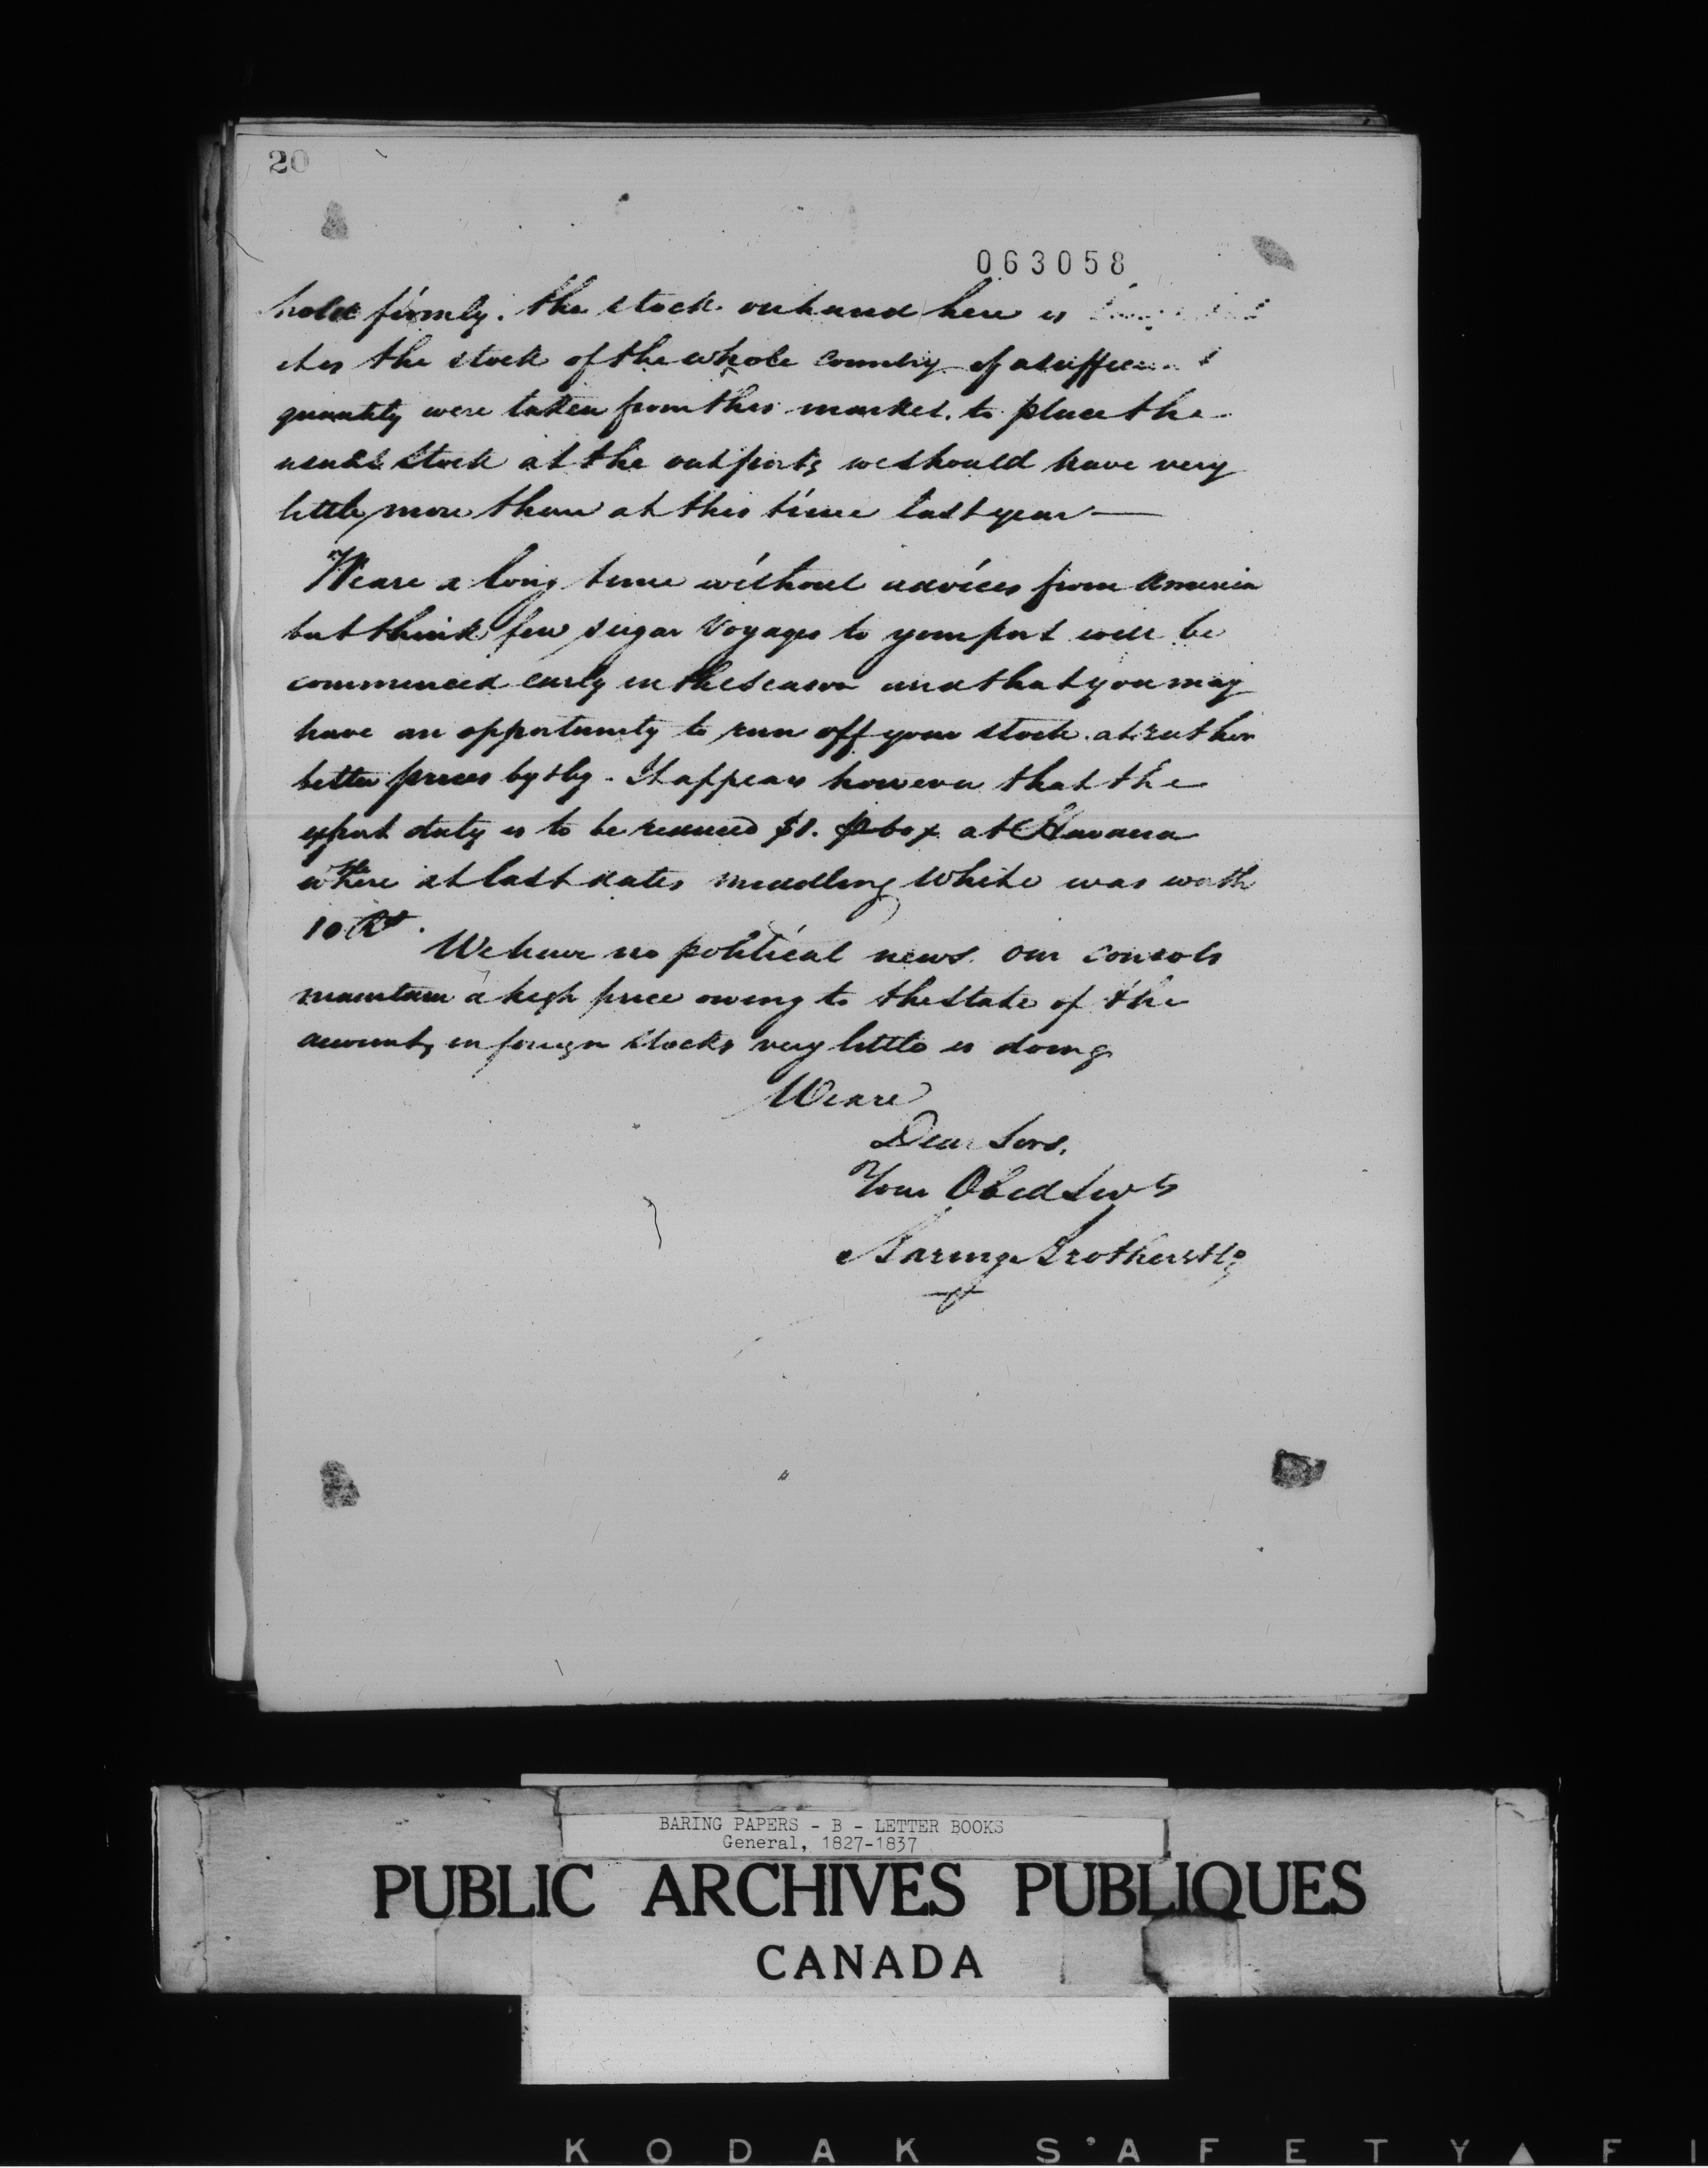 20
063058
hold firmly. The stock on hand here is
it is the stock of the whole country if a sufficient
quantity were taken from this market. to place the
usual stock at the outports we should have very
little more than at this time last year —
We are a long time without advices from America
but think few sugar Voyages to your port will be
commenced early in the season and that you may
have an opportunity to run off your stock at rather
better prices by & by. It appears however that the
export duty is to be reduced $1. p box at Havana
where at last dates middling White was worth
10
We have no political news. Our consols
maintain a high price owing to the state of the
account, in foreign stocks very little is doing
We are
Dear Sirs,
Your Obed Servts
Baring Brothers & Co
BARING PAPERS - B - LETTER BOOKS
General, 1827-1837
PUBLIC ARCHIVES PUBLIQUES
CANADA
KODAK SAFETY FI